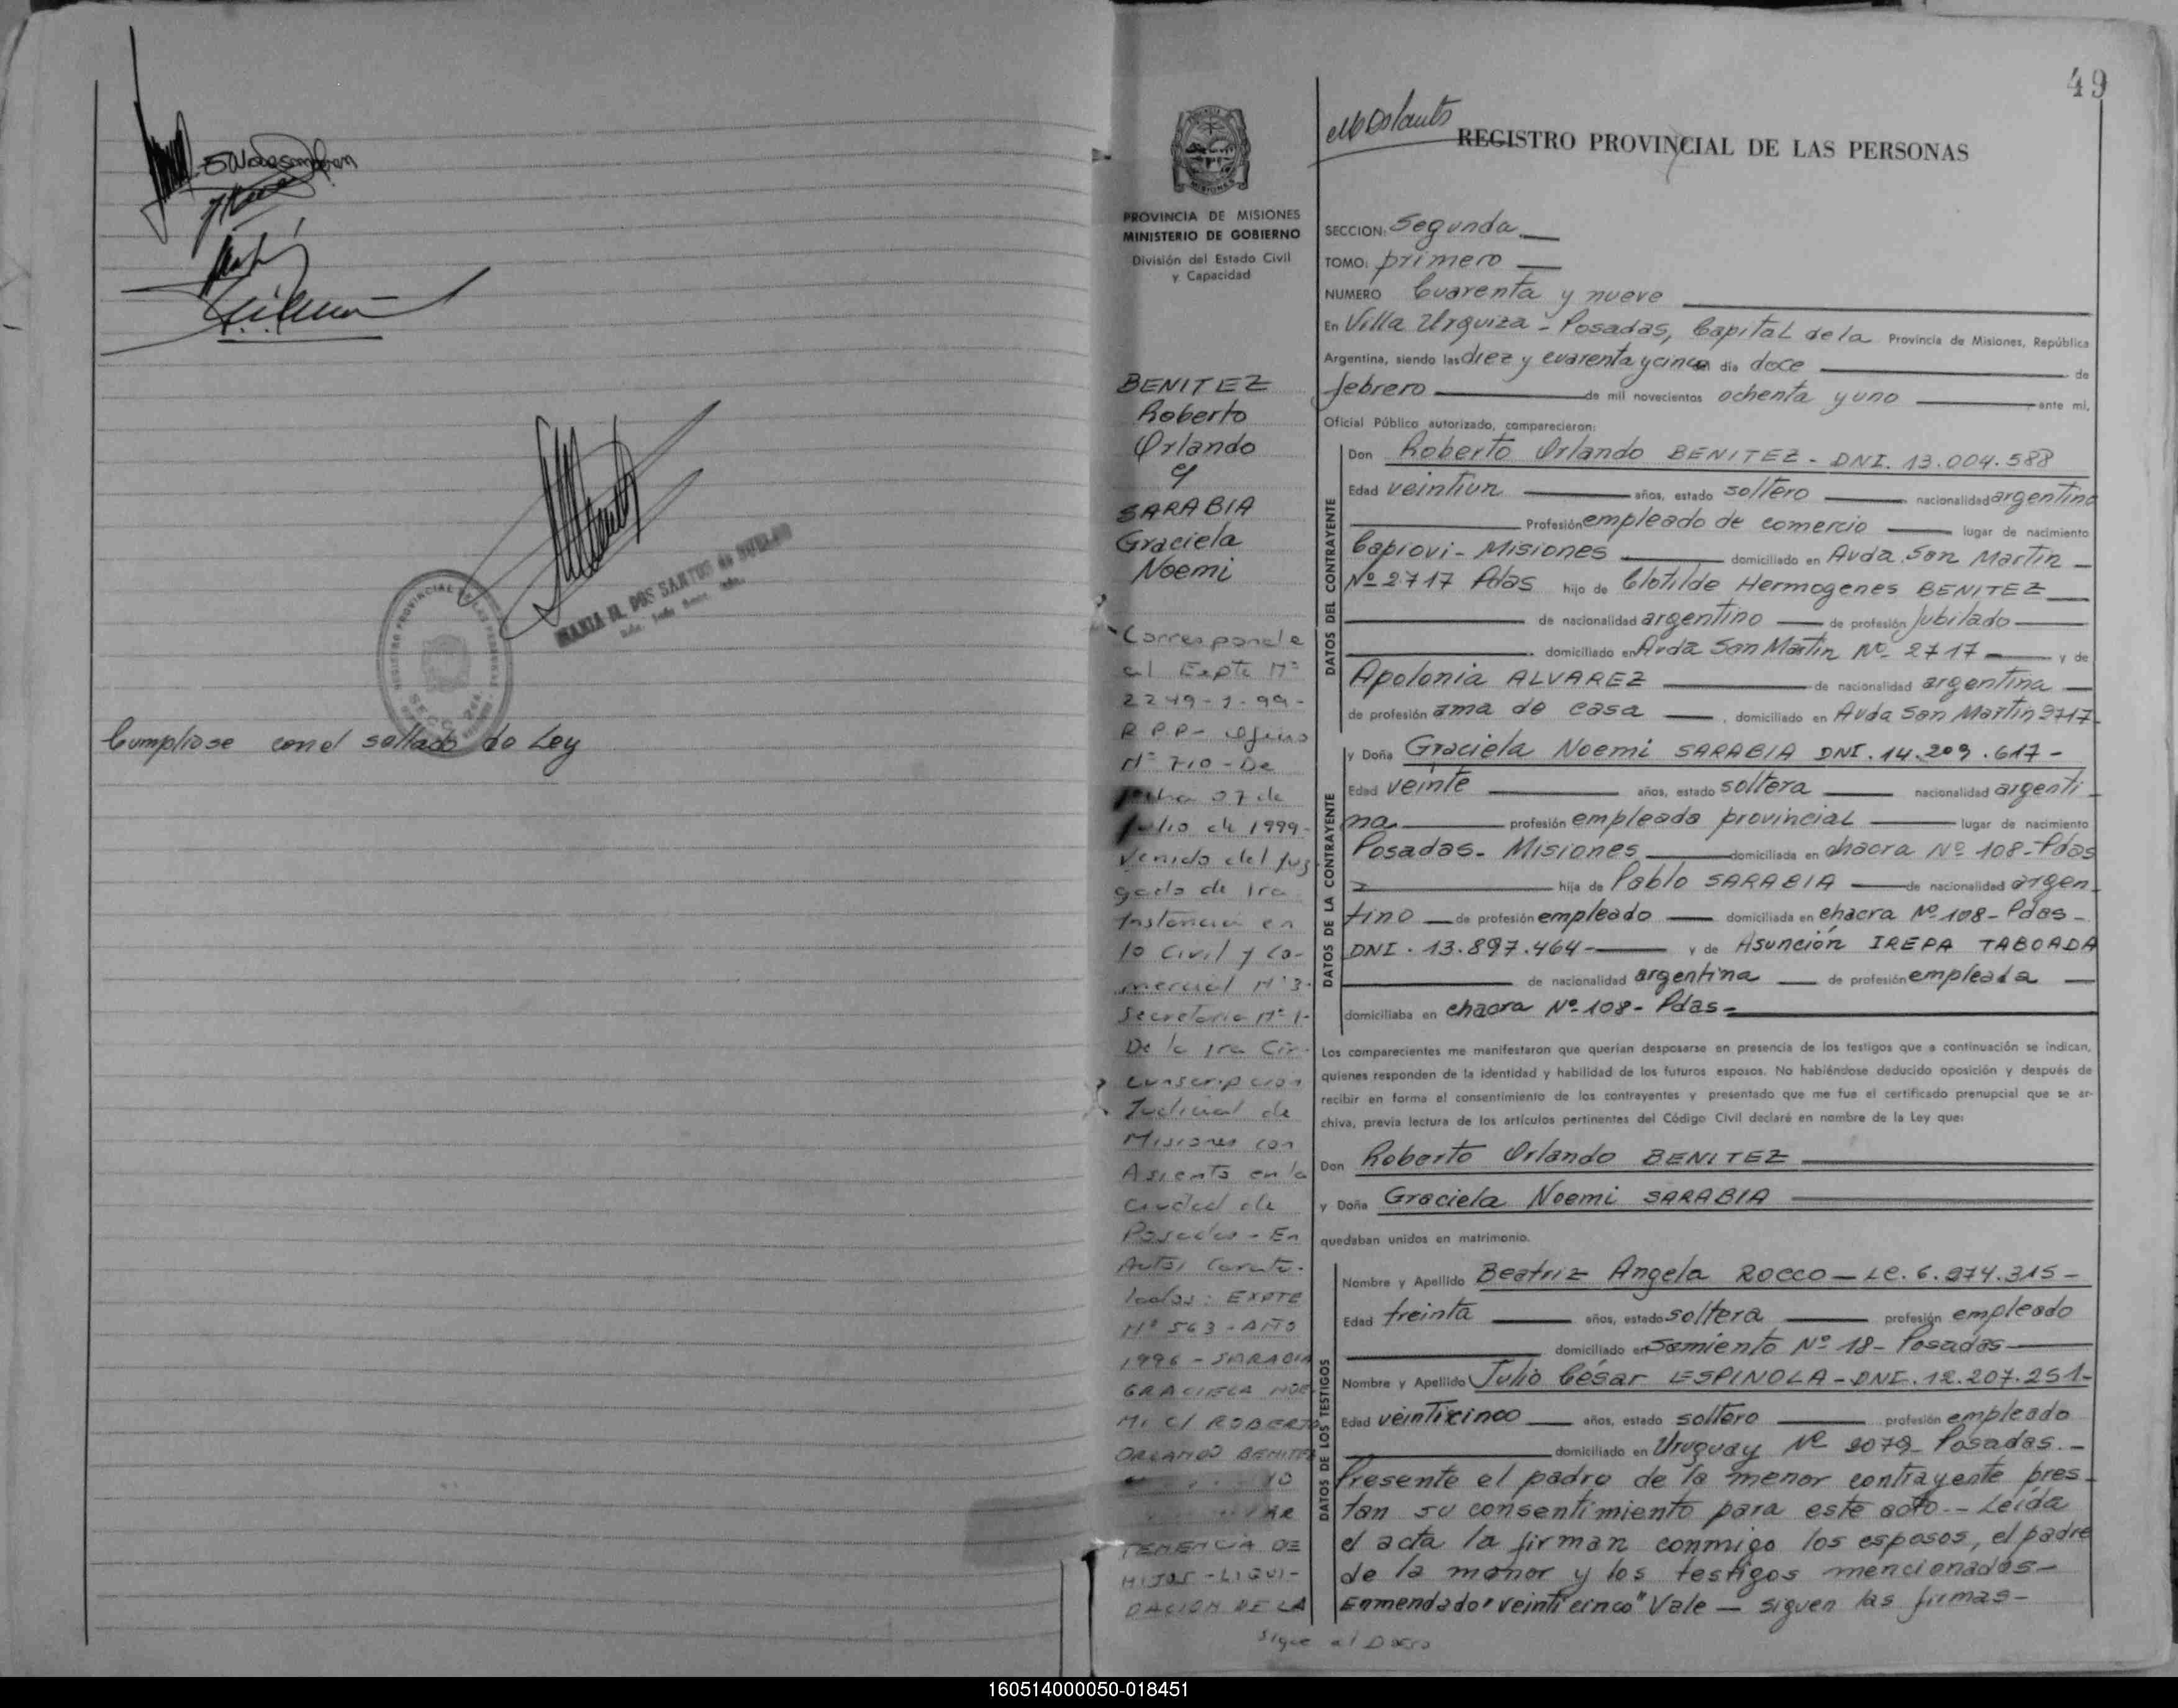 Cumpliose con el sellado de Ley
REGISTRO PROVINCIAL DE LAS PERSONAS
SECC. 2da
MARIA M. DOS SANTOS de
49
PROVINCIA DE MISIONES
MINISTERIO DE GOBIERNO
División del Estado Civil
y Capacidad
BENITEZ
Roberto
Orlando
y
SARABIA
Graciela
Noemi
Corresponde
al Expte Nº
2249-1-99-
R.P.P- oficio
Nº 710-De
fecha 07 de
Julio de 1999-
Venido del Juz
gado de 1ra
Instancia en
lo Civil y Co-
mercial Nº3-
Secretaria Nº1-
De la 1ra Cir-
cunscripcion
Judicial de
Misiones con
Asiento en la
ciudad de
Posadas - En
Autos Caratu-
lados: EXPTE
Nº 563-AÑO
1996 - SARABIA
GRACIELA NOE
MI C/ ROBERTO
ORLANDO BENITEZ
TENENCIA DE
HIJOS - LIQUI-
DACION DE LA
Sigue al Dorso
REGISTRO PROVINCIAL DE LAS PERSONAS
SECCION: Segunda
TOMO: primero
NUMERO Cuarenta y nueve
En Villa Urquiza - Posadas, Capital de la Provincia de Misiones, República
Argentina, siendo las diez y cuarenta y cinco del día doce de
febrero de mil novecientos ochenta y uno ante mi,
Oficial Público autorizado, comparecieron:
DATOS DEL CONTRAYENTE
Don Roberto Orlando BENITEZ - DNI. 13.004.588
Edad veintiun años, estado soltero nacionalidad argentino
Profesión empleado de comercio lugar de nacimiento
Capiovi - Misiones domiciliado en Avda. San Martin -
Nº 2717 Pdas hijo de Clotilde Hermogenes BENITEZ
de nacionalidad argentino de profesión Jubilado
domiciliado en Avda San Martin Nº 2717 y de
Apolonia ALVAREZ de nacionalidad argentina
de profesión ama de casa, domiciliado en Avda San Martin 2717-
DATOS DE LA CONTRAYENTE
y Doña Graciela Noemi SARABIA DNI. 14.209.617-
Edad veinte años, estado soltera nacionalidad argenti-
na profesión empleada provincial lugar de nacimiento
Posadas - Misiones domiciliada en chacra Nº 108-Pdas
hija de Pablo SARABIA de nacionalidad argen-
tino de profesión empleado domiciliada en chacra Nº 108- Pdas-
DNI. 13.897.464- y de Asunción IREPA TABOADA
de nacionalidad argentina de profesión empleada
domiciliaba en chacra Nº 108- Pdas-
Los comparecientes me manifestaron que querían desposarse en presencia de los testigos que a continuación se indican,
quienes responden de la identidad y habilidad de los futuros esposos. No habiéndose deducido oposición y después de
recibir en forma el consentimiento de los contrayentes y presentado que me fue el certificado prenupcial que se ar-
chiva, previa lectura de los artículos pertinentes del Código Civil declaré en nombre de la Ley que:
Don Roberto Orlando BENITEZ
y Doña Graciela Noemi SARABIA
quedaban unidos en matrimonio.
DATOS DE LOS TESTIGOS
Nombre y Apellido Beatriz Angela ROCCO - LC. 6.274.315-
Edad treinta años, estado soltera profesión empleado
domiciliado en Samiento Nº 18- Posadas
Nombre y Apellido Julio César ESPINOLA - DNI. 12.207.251-
Edad veinticinco años, estado soltero profesión empleado
domiciliado en Uruguay Nº 2079 Posadas.-
Presente el padre de la menor contrayente pres-
tan su consentimiento para este acto.- Leída
el acta la firman conmigo los esposos, el padre
de la menor y los testigos mencionados-
Enmendado "veinticinco" Vale - siguen las firmas-
160514000050-018451